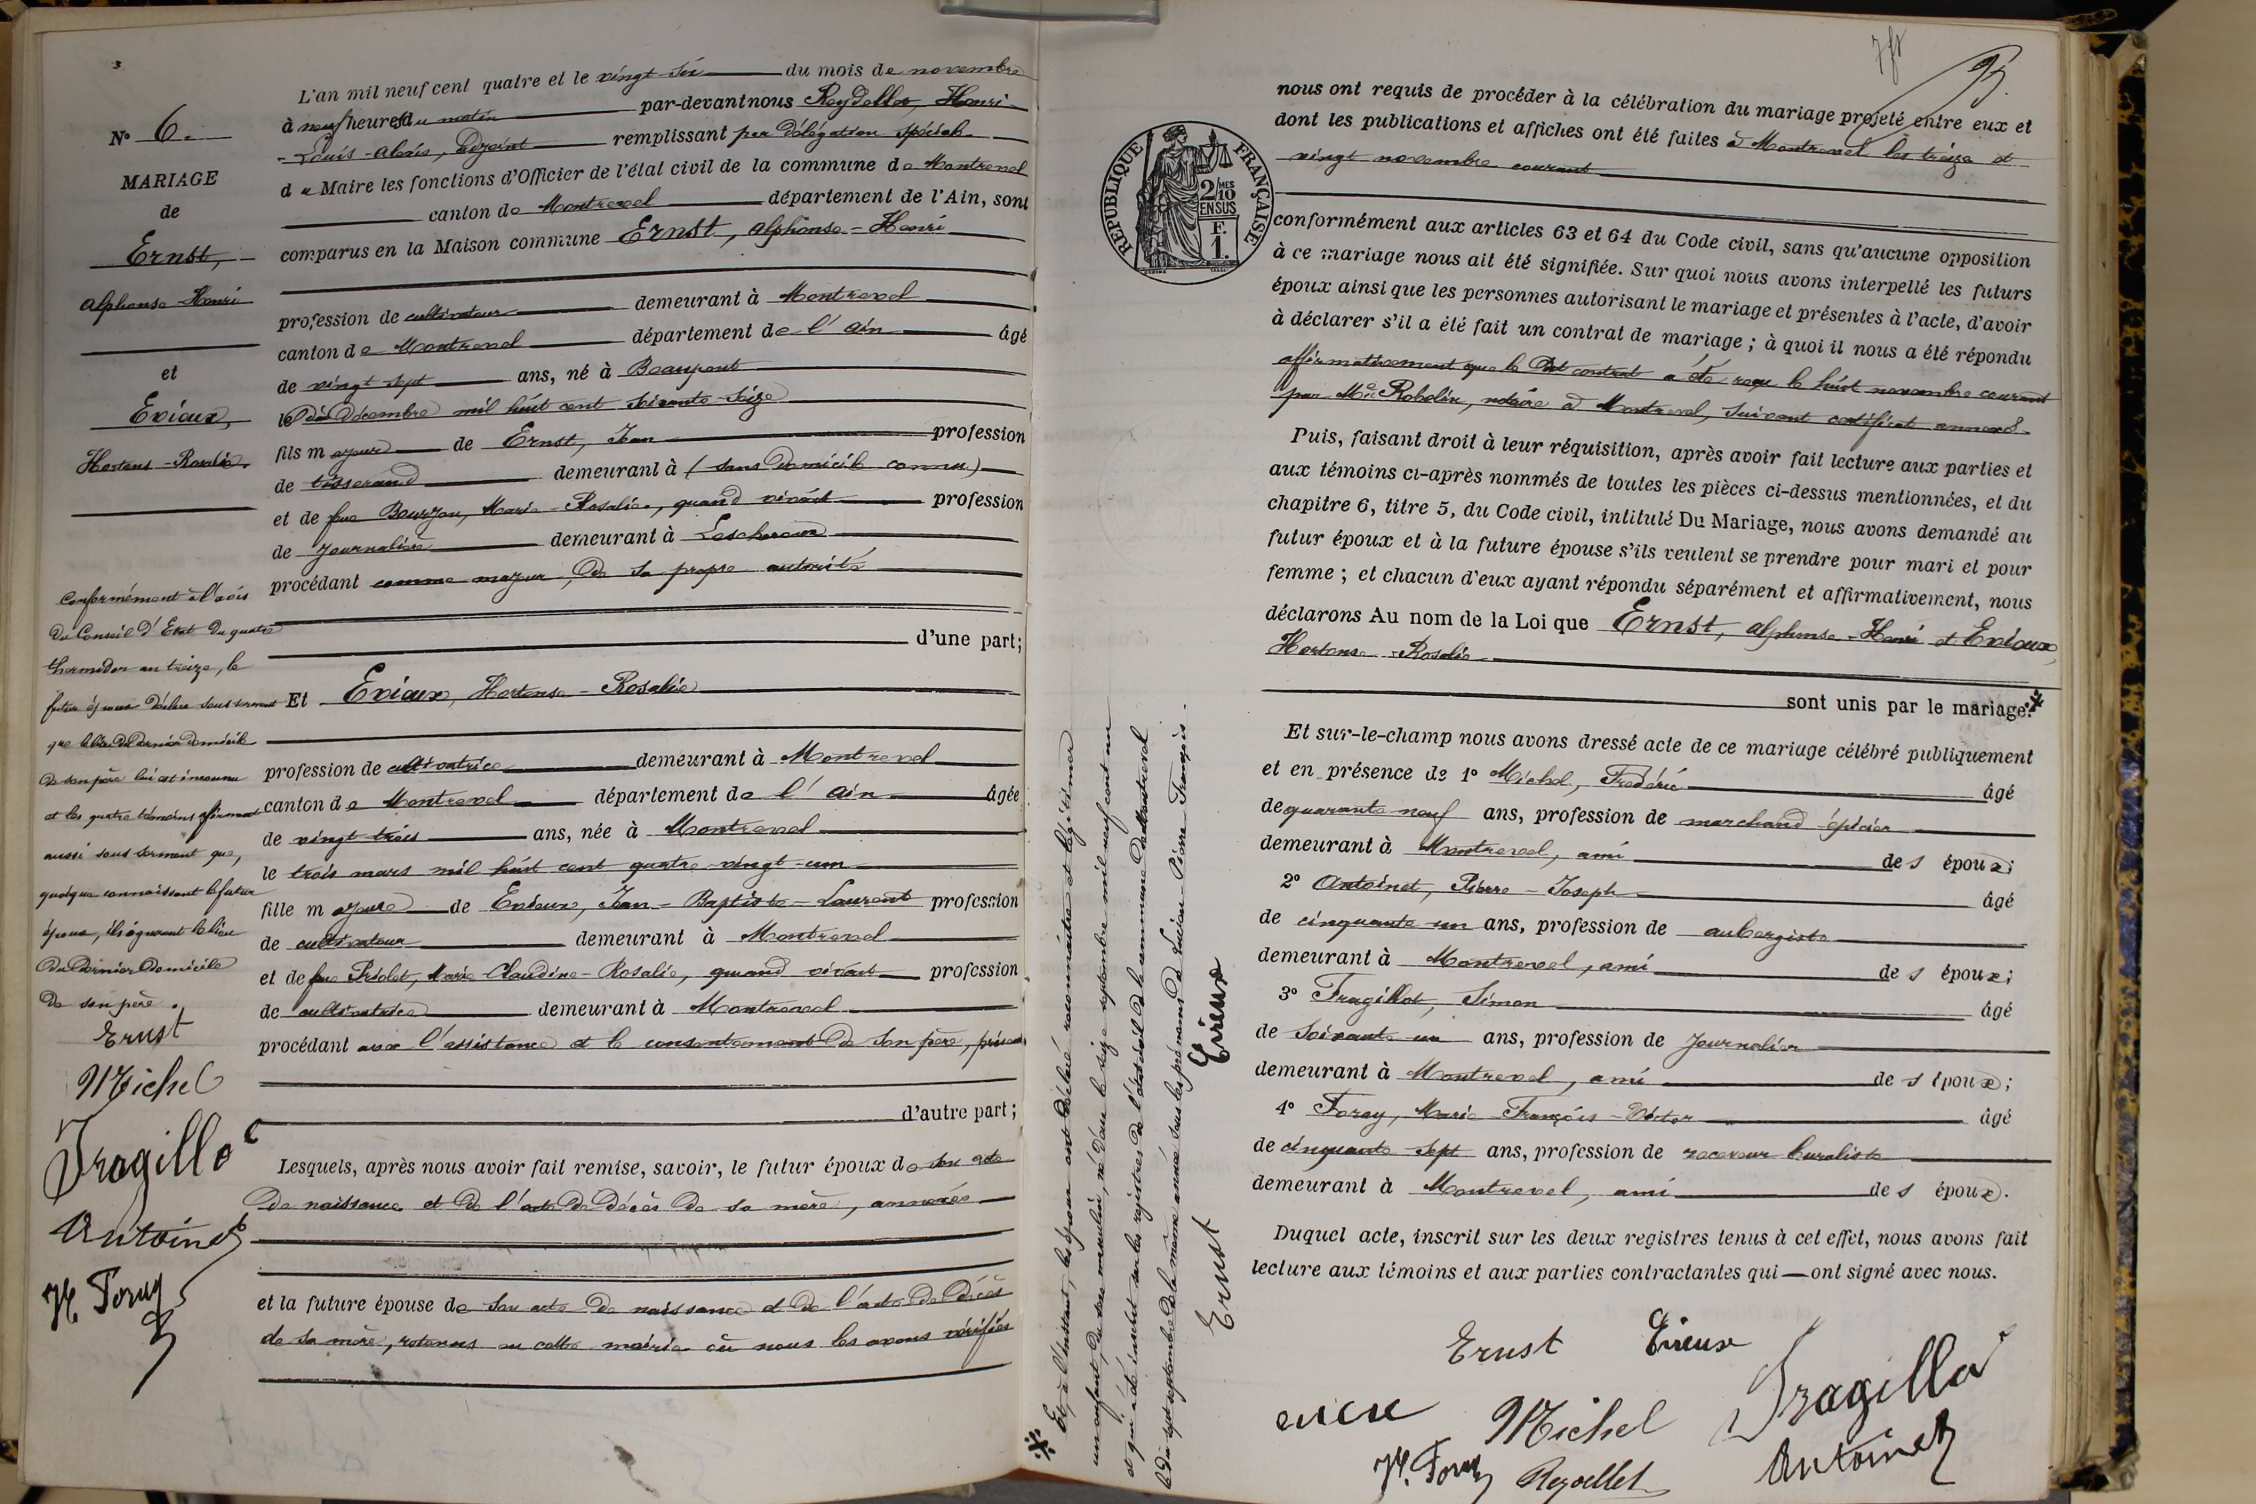 N° 6.
MARIAGE
de
Ernst,
Alphonse-Henri
et
Evieux,
Hortense-Rosalie.
L'an mil neuf cent quatre et le vingt-six du mois de novembre
à neuf heures du matin par-devant nous Reydellet, Henri-
-Louis-Alexis, Adjoint remplissant par délégation spéciale
du Maire les fonctions d'Officier de l'état civil de la commune de Montrevel
canton de Montrevel département de l'Ain, sont
comparus en la Maison commune Ernst, Alphonse-Henri
profession de cultivateur demeurant à Montrevel
canton de Montrevel département de l'Ain âgé
de vingt sept ans, né à Beaupont
le dix décembre mil huit cent soixante-seize
fils majeur de Ernst, Jean profession
de tisserand demeurant à (sans domicile connu)
et de feue Bourjon, Marie-Rosalie, quand vivait profession
de journalière demeurant à Lescheroux
procédant comme majeur, de sa propre autorité
d'une part;
Et Evieux, Hortense-Rosalie
profession de cultivatrice demeurant à Montrevel
canton de Montrevel département de l'Ain âgée
de vingt trois ans, née à Montrevel
le trois mars mil huit cent quatre-vingt-un
fille majeure de Evieux, Jean-Baptiste-Laurent profession
de cultivateur demeurant à Montrevel
et de feue Piolet, Marie-Claudine-Rosalie, quand vivait profession
de cultivatrice demeurant à Montrevel
procédant avec l'assistance et le consentement de son père, présent
d'autre part;
Lesquels, après nous avoir fait remise, savoir, le futur époux de son acte
de naissance et de l'acte de décès de sa mère, annexés
et la future épouse de son acte de naissance et de l'acte de décès
de sa mère, retenus en cette mairie où nous les avons vérifiés
Conformément à l'avis
du Conseil d'Etat du quatre
thermidor an treize, le
futur époux déclare sous serment
que le lieu du dernier domicile
de son père lui est inconnu
et les quatre témoins affirment
aussi sous serment que,
quoique connaissant le futur
époux, ils ignorent le lieu
du dernier domicile
de son père.
Ernst
Michel
Fragillo
Antoinet
M. Foray
nous ont requis de procéder à la célébration du mariage projeté entre eux et
dont les publications et affiches ont été faites à Montrevel les treize et
vingt novembre courant
RÉPUBLIQUE FRANÇAISE
2 MES
10
EN SUS
F.
1.
conformément aux articles 63 et 64 du Code civil, sans qu'aucune opposition
à ce mariage nous ait été signifiée. Sur quoi nous avons interpellé les futurs
époux ainsi que les personnes autorisant le mariage et présentes à l'acte, d'avoir
à déclarer s'il a été fait un contrat de mariage ; à quoi il nous a été répondu
affirmativement que le dit contrat a été reçu le huit novembre courant
par Me Robelin, notaire à Montrevel, suivant certificat annexé.
Puis, faisant droit à leur réquisition, après avoir fait lecture aux parties et
aux témoins ci-après nommés de toutes les pièces ci-dessus mentionnées, et du
chapitre 6, titre 5, du Code civil, intitulé Du Mariage, nous avons demandé au
futur époux et à la future épouse s'ils veulent se prendre pour mari et pour
femme ; et chacun d'eux ayant répondu séparément et affirmativement, nous
déclarons Au nom de la Loi que Ernst, Alphonse-Henri et Evieux,
Hortense-Rosalie
sont unis par le mariage.*
Et sur-le-champ nous avons dressé acte de ce mariage célébré publiquement
et en présence de 1° Michel, Frédéric âgé
de quarante neuf ans, profession de marchand épicier
demeurant à Montrevel, ami des époux;
2° Antoinet, Pierre-Joseph âgé
de cinquante un ans, profession de aubergiste
demeurant à Montrevel, ami des époux;
3° Fragillot, Simon âgé
de soixante un ans, profession de journalier
demeurant à Montrevel, ami des époux;
4° Foray, Marie-François-Victor âgé
de cinquante sept ans, profession de receveur buraliste
demeurant à Montrevel, ami des époux.
Duquel acte, inscrit sur les deux registres tenus à cet effet, nous avons fait
lecture aux témoins et aux parties contractantes qui ont signé avec nous.
Ernst Evieux
Fragillo
evieux Michel
Antoinet
M. Foray Reydellet
* Et, à l'instant, les époux ont déclaré reconnaître et légitimer
un enfant, du sexe masculin, né d'eux le seize septembre mil neuf cent un
et qui a été inscrit sur les registres de l'état civil de la commune de Montrevel
le dix sept septembre de la même année sous les prénoms de Lucien-Pierre-François.
Ernst Evieux